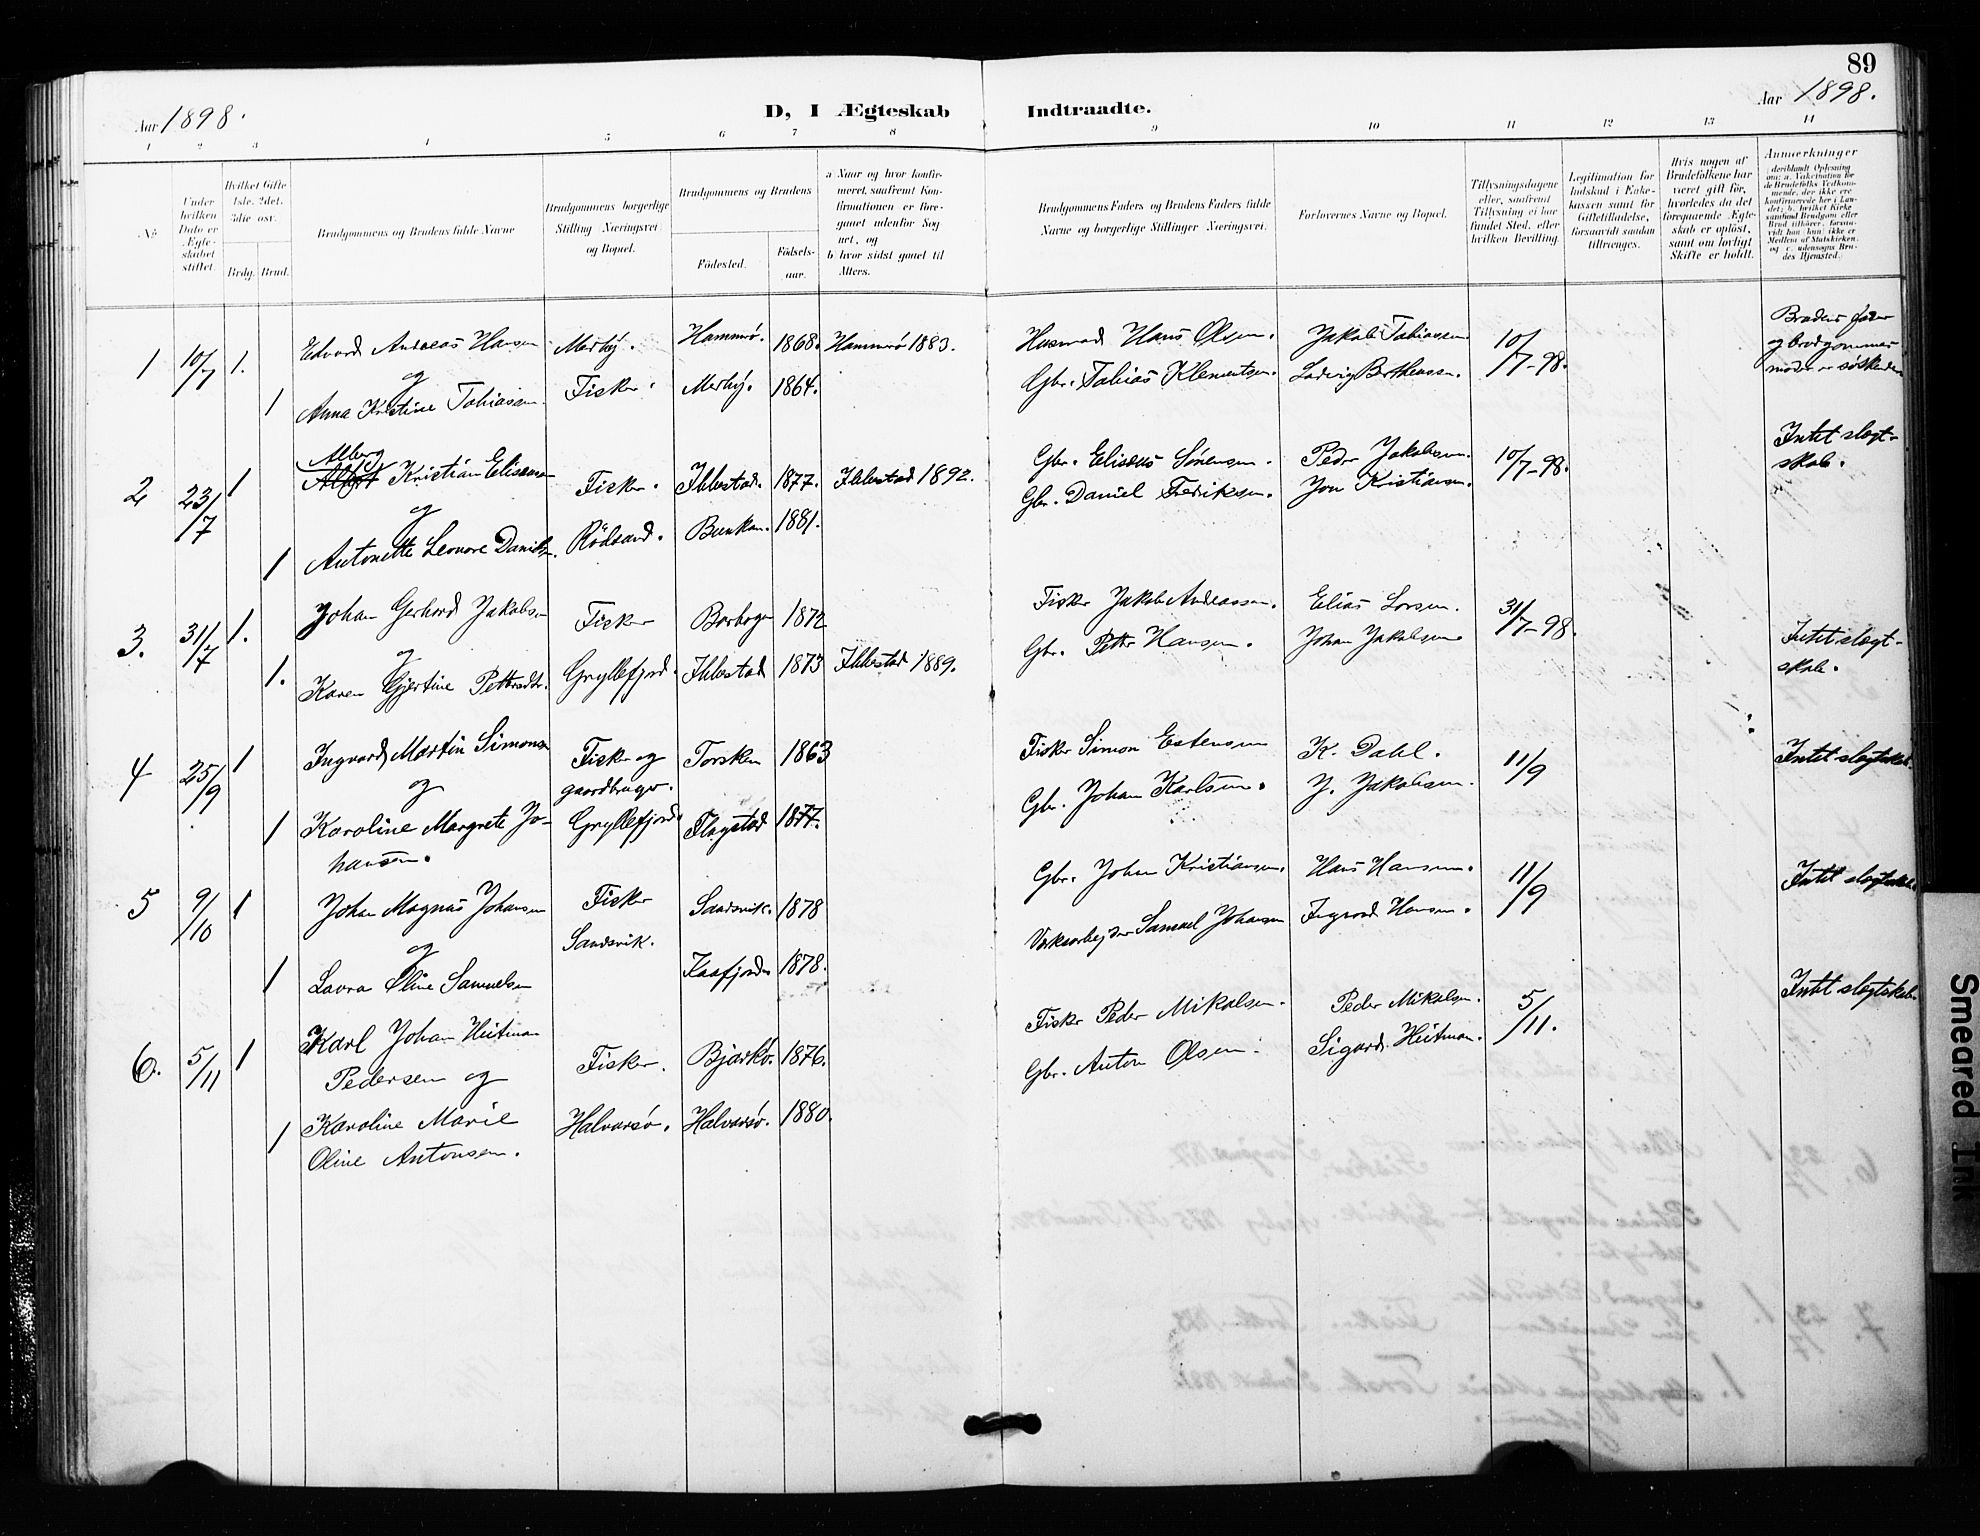 89
Aar 1898.
D, I Ægteskab Indtraadte.
Aar 1898.
1 2 3 4 5 6 7 8 9 10 11 12 13 14
No.
Under hvilken Dato er Ægteskabet stiftet.
Hvilket Gifte 1ste. 2det. 3die osv.
Brdg. Brud.
Brudgommens og Brudens fulde Navne
Brudgommens borgerlige Stilling Næringsvei og Bopæl.
Brudgommens og Brudens
Fødested.
Fødselsaar.
a Naar og hvor konfirmeret, saafremt Konfirmationen er foregaaet udenfor Sognet, og
b hvor sidst gaaet til Alters.
Brudgommens Faders og Brudens Faders fulde Navne og borgerlige Stillinger Næringsvei.
Forlovernes Navne og Bopæl.
Tillysningsdagene eller, saafremt Tillysning ei har fundet Sted, efter hvilken Bevilling.
Legitimation for Indskud i Enkekassen samt for Giftetilladelse, forsaavidt saadan tiltrænges.
Hvis nogen af Brudefolkene har været gift før, hvorledes da det foregaaende Ægteskab er opløst, samt om lovligt Skifte er holdt.
Anmærkninger
1 10/7 1. Edvard Andreas Hansen Merhý. Hammrø. 1868. Hammrø 1883. Husmand Hans Olsen. Jakob Tobiassen 10/7-98. Brudens fader
og Fisker. Merhý. 1864. Gbr. Tobias Klementsen. Ludvig Berthensen. og brudgommens
1 Anna Kristine Tobiasen moder er søskende
2 23/7 1 Alberg
Albert Kristian Eliseussen Fisker. Ibbestad. 1877. Ibbestad 1892. Gbr. Eliseus Sørensen. Peder Jakobsen. 10/7-98. Intet slegt-
og Gbr. Daniel Fredriksen. Jon Kristiansen. skab.
1 Antonette Leonore Danielsen. Rödsand. Bunkan. 1881.
3. 31/7 1. Johan Gerhard Jakobsen Fisker 1872 Fisker Jakob Andreassen. Elias Larsen. 31/7-98. Intet slegt-
og Gbr. Petter Hansen. Johan Jakobsen skab.
1. Karen Gjertine Pettersdtr. Gryllefjord. Ibbestad 1873 Ibbestad 1889.
4 25/9 1 Ingvard Martin Simonsen Fisker og Torsken 1863 Fisker Simon Estensen K. Dahl. 11/9 Intet slegtskab.
og gaardbruger. Gbr. Johan Karlsen. J. Jakobsen.
1 Karoline Margrete Jo- Gryllefjord. Flagstad 1877.
hansen.
5 9/10 1 Johan Magnus Johansen Fisker Sandsvik. 1878 Gbr. Johan Kristiansen. Hans Hansen. 11/9 Intet slegtskab.
og Sandsvik. Værksarbejder Samuel Johansen Ingvard Hansen.
1 Laura Oline Samuelsen Kaafjord. 1878.
6. 5/11 1 Karl Johan Heitman Fisker. Bjarkö. 1876. Fisker Peder Mikalsen. Peder Mikalsen. 5/11. Intet slegtskab.
Pedersen og Gbr. Anton Olsen. Sigard Heitman.
1 Karoline Marie Halvarsø. Halvarsø. 1880.
Oline Antonsen.
Smeared Ink